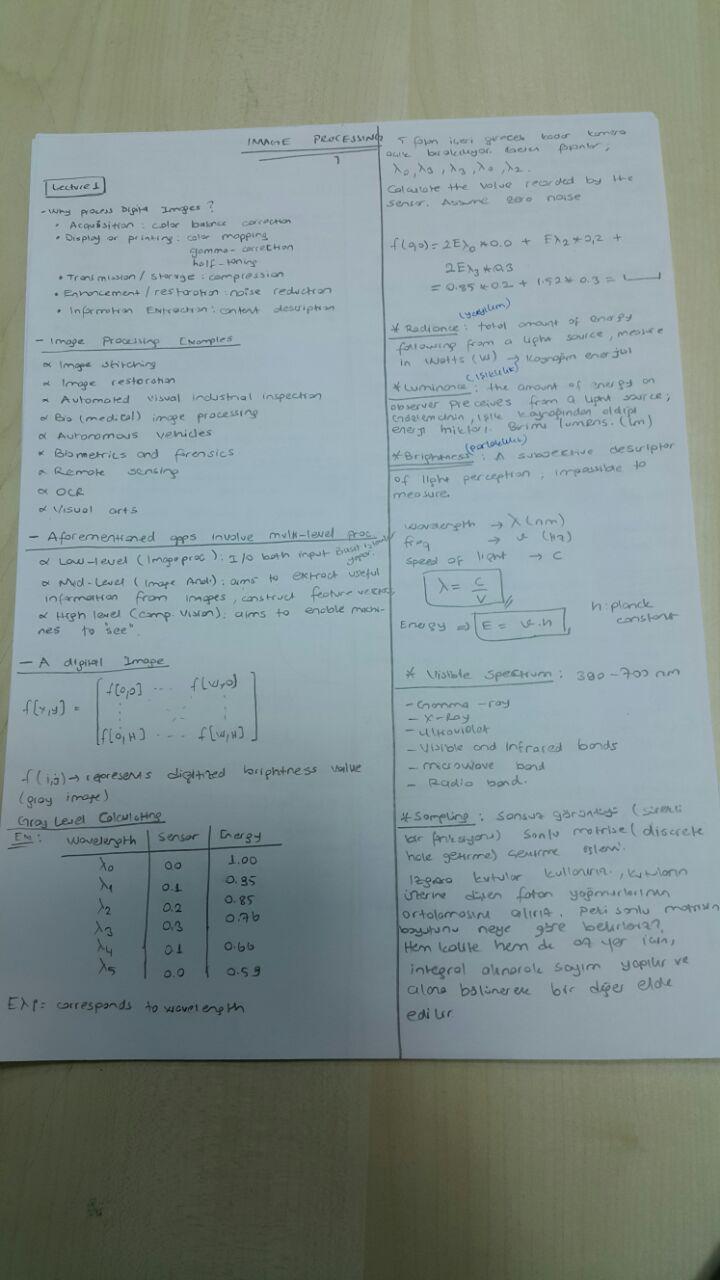 IMAGE PROCESSING
Lecture 1
- Why process Digital Images?
• Acquisition : color balance correction
• Display or printing : color mapping
gamma-correction
half-toning
• Transmission / Storage : compression
• Enhancement / restoration : noise reduction
• Information Extraction : content description
- Image Processing Examples
∝ Image stitching
∝ Image restoration
∝ Automated visual industrial inspection
∝ Bio (medical) image processing
∝ Autonomous vehicles
∝ Biometrics and forensics
∝ Remote sensing
∝ OCR
∝ Visual arts
- Aforementioned apps involve multi-level proc.
∝ Low-level (Image proc) : I/O both input
∝ Mid-Level (Image Anal.) : aims to extract useful
information from images, construct feature vectors
∝ High level (comp. Vision) : aims to enable machi-
nes to "see".
- A digital Image
f[x,y] = [ f[0,0] ... f[W,0]
f[0,H] ... f[W,H] ]
f(i,j) → represents digitized brightness value
(gray image)
Gray Level Calculating
Ex : Wavelength Sensor Energy
λ0 0.0 1.00
λ1 0.1 0.95
λ2 0.2 0.85
λ3 0.3 0.76
λ4 0.1 0.66
λ5 0.0 0.59
Eλp = corresponds to wavelength
5 foton içeri girecek kadar kamera
açık bırakılıyor. fotonlar;
λ0, λ3, λ3, λ0, λ2.
Calculate the value recorded by the
sensor. Assume zero noise
f(9,0) = 2Eλ0 * 0.0 + Eλ2 * 0,2 +
2Eλ3 * 0.3
= 0.85 * 0.2 + 1.52 * 0.3 =
(yayılım)
* Radiance : total amount of energy
following from a light source, measure
in Watts (W) → Kaynağın enerjisi
(ışıklılık)
* Luminance : the amount of energy an
observer preceives from a light source;
Gözlemcinin, ışık kaynağından aldığı
enerji miktarı. Birimi lumens. (lm)
(parlaklık)
* Brightness : A subjective descriptor
of light perception ; impossible to
measure.
wavelength → λ (nm)
freq → v (Hz)
speed of light → c
λ = c/v
Energy ⇒ E = v.h h : planck
constant
* Visible Spectrum : 390 - 700 nm
- Gamma-ray
- X-Ray
- Ultraviolet
- Visible and Infrared bands
- microwave band
- Radio band.
* Sampling : Sonsuz görüntüyü (sürekli
bir fonksiyonu) sonlu matrise (discrete
hale getirme) çevirme işlemi.
Izgara kutular kullanırız, kutuların
üzerine düşen foton yağmurlarının
ortalamasını alırız. Peki sonlu matrisin
boyutunu neye göre belirleriz?
Hem kalite hem de az yer için,
integral alınarak sayım yapılır ve
alana bölünerek bir değer elde
edilir.